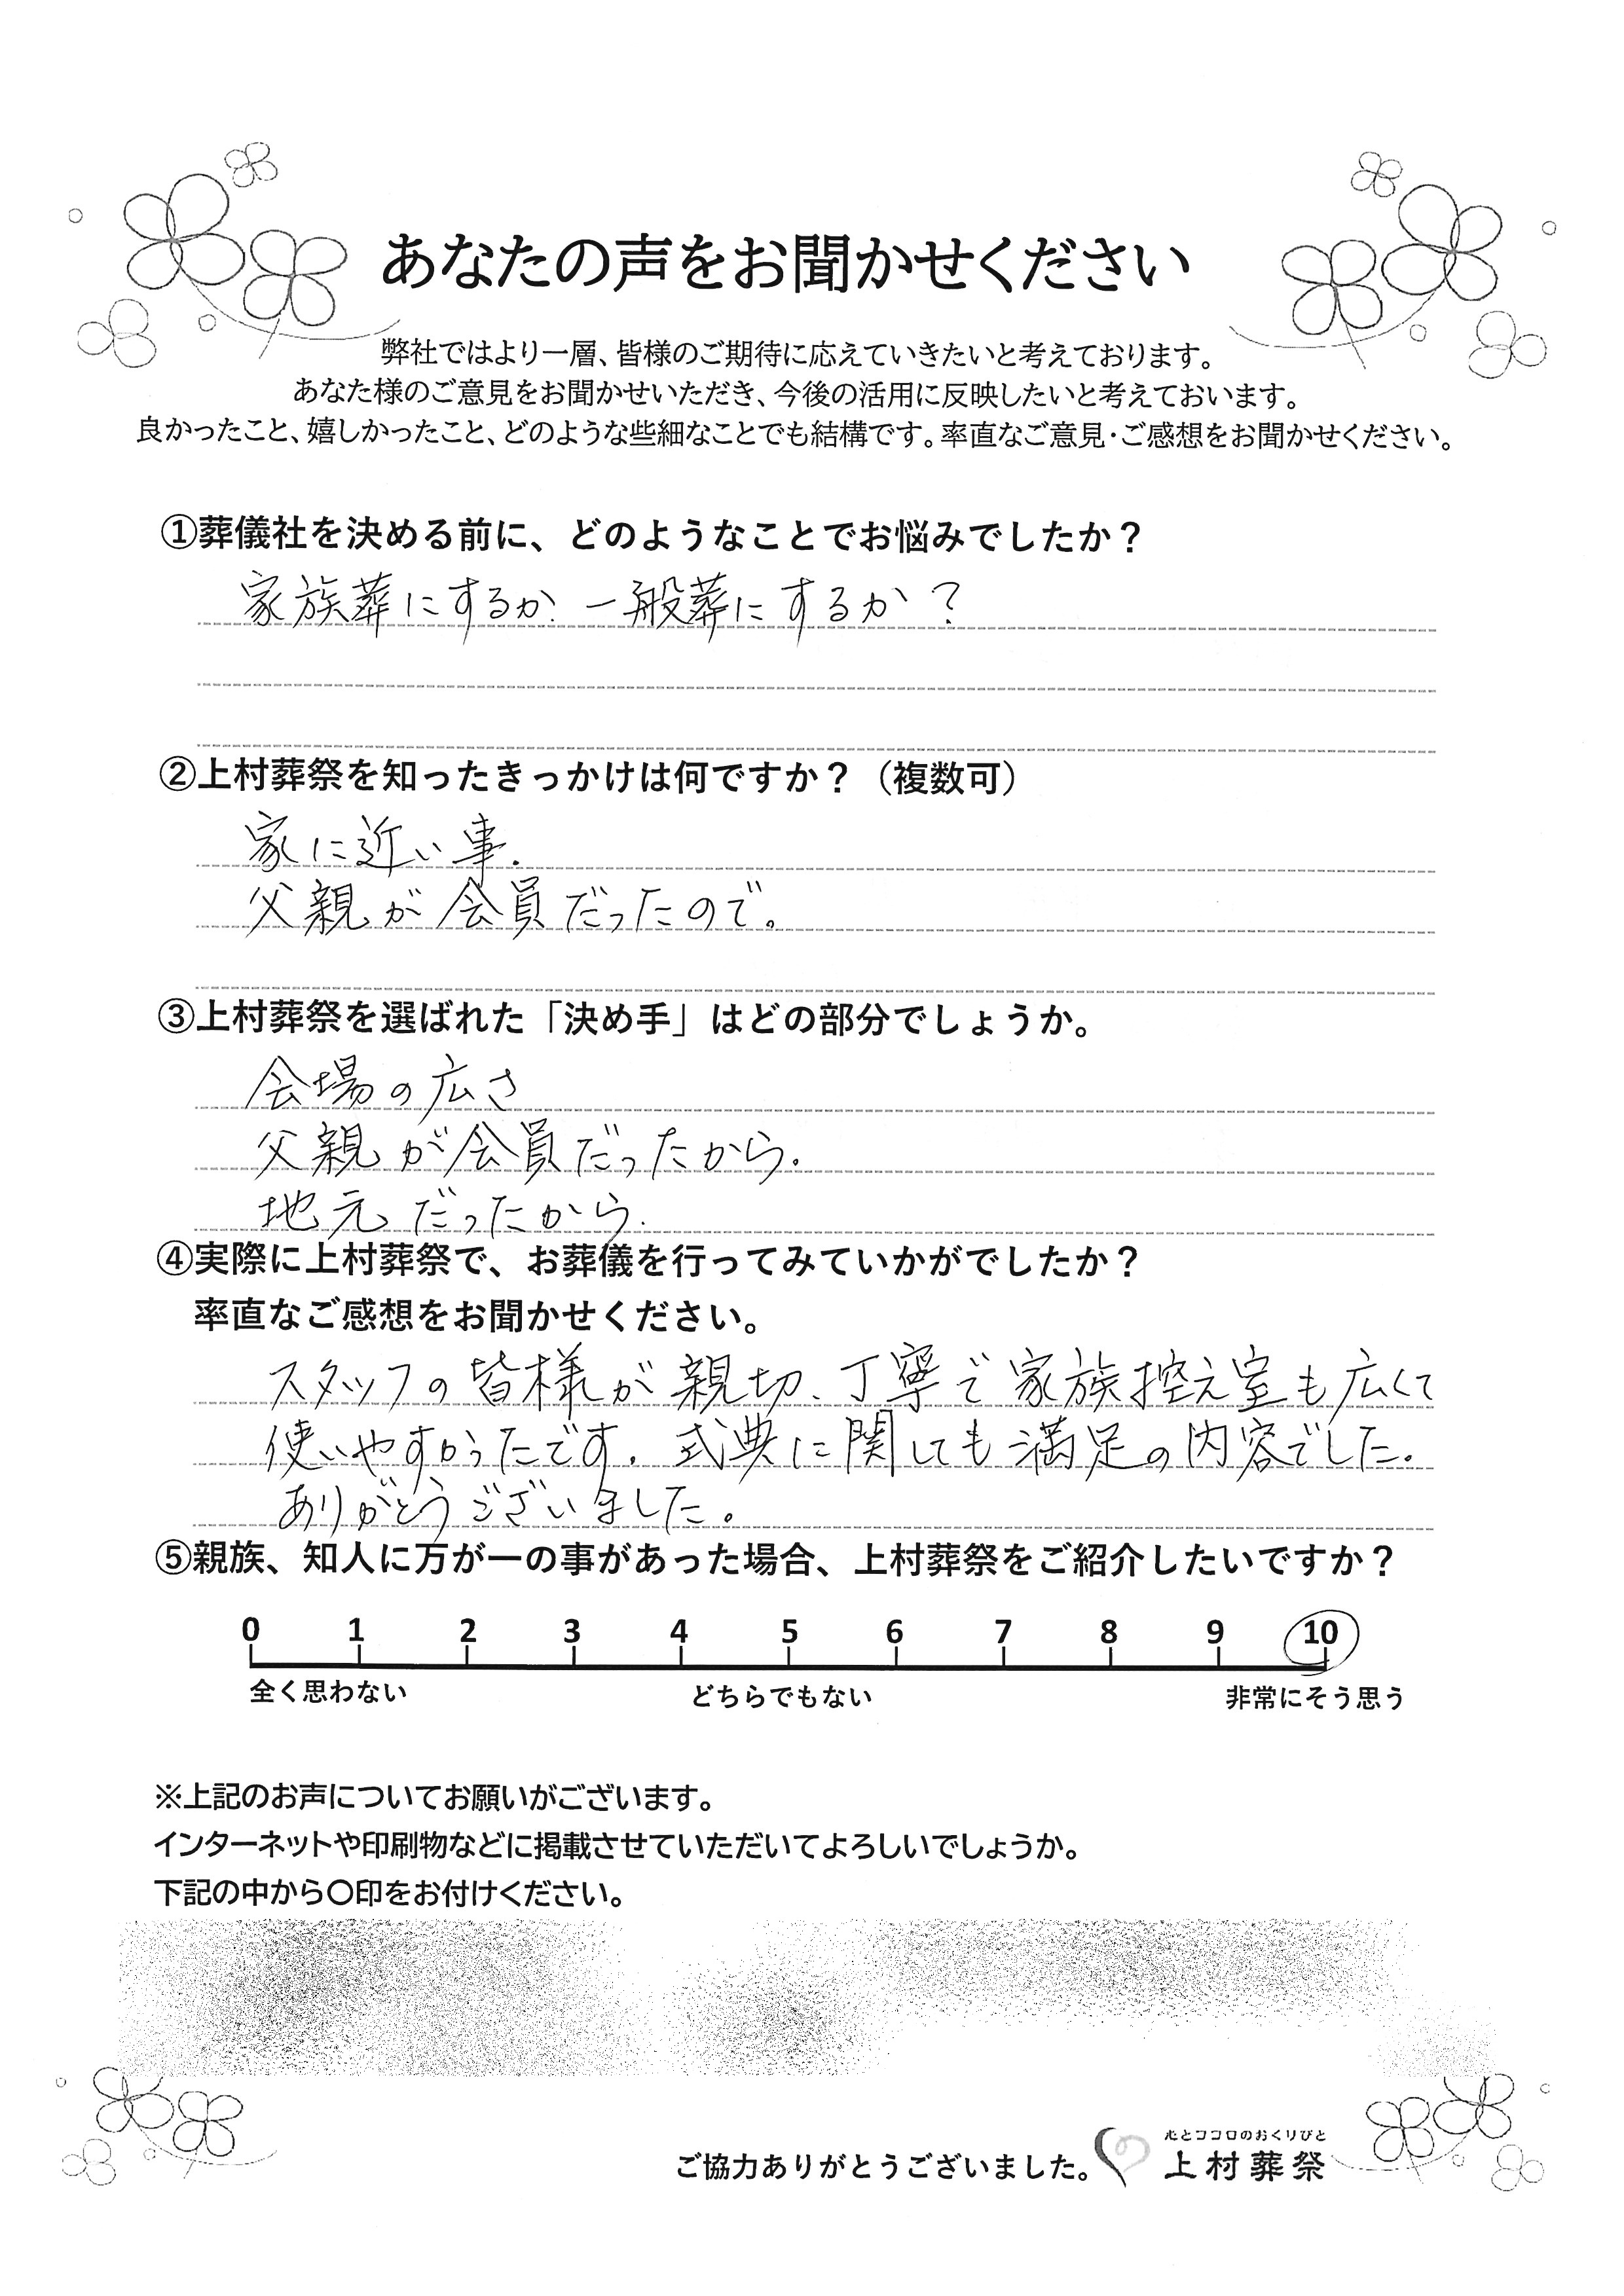 あなたの声をお聞かせください
弊社ではより一層、皆様のご期待に応えていきたいと考えております。
あなた様のご意見をお聞かせいただき、今後の活用に反映したいと考えておいます。
良かったこと、嬉しかったこと、どのような些細なことでも結構です。率直なご意見・ご感想をお聞かせください。
①葬儀社を決める前に、どのようなことでお悩みでしたか？
家族葬にするか、一般葬にするか？
②上村葬祭を知ったきっかけは何ですか？（複数可）
家に近い事.
父親が会員だったので。
③上村葬祭を選ばれた「決め手」はどの部分でしょうか。
会場の広さ
父親が会員だったから.
地元だったから.
④実際に上村葬祭で、お葬儀を行ってみていかがでしたか？
率直なご感想をお聞かせください。
スタッフの皆様が親切、丁寧で家族控え室も広くて
使いやすかったです. 式典に関しても満足の内容でした.
ありがとうございました。
⑤親族、知人に万が一の事があった場合、上村葬祭をご紹介したいですか？
0 1 2 3 4 5 6 7 8 9 10
全く思わない どちらでもない 非常にそう思う
※上記のお声についてお願いがございます。
インターネットや印刷物などに掲載させていただいてよろしいでしょうか。
下記の中から〇印をお付けください。
心とココロのおくりびと
ご協力ありがとうございました。 上村葬祭